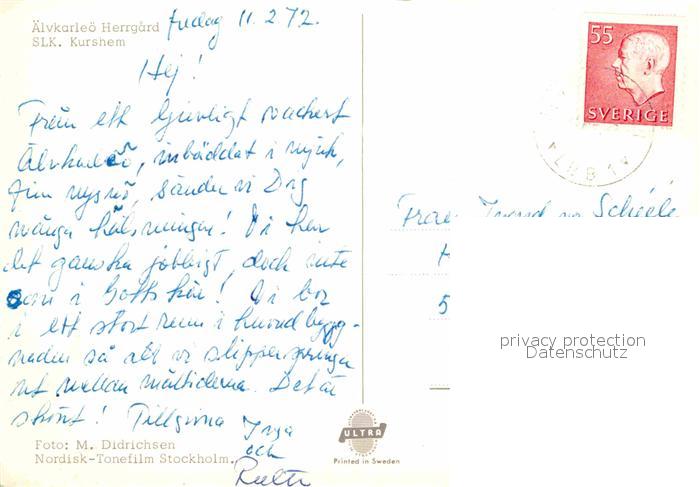 Älvkarleö Herrgård
SLK. Kurshem
fredag 11.2.72.
Hej!
Från ett ljuvligt vackert
Älvkarleö, inbäddat i mjuk,
fin nysnö, sända vi Dig
många hälsningar! Vi har
det ganska jobbigt, dock inte
som i Gottskär! Vi bor
i ett stort rum i huvudbygg-
naden så att vi slipper springa
ut mellan måltiderna. Det är
skönt! Tillgivna Inga
och
Ruth
Foto: M. Didrichsen
Nordisk-Tonefilm Stockholm.
ULTRA
Printed in Sweden
55
SVERIGE
Fru
Scheéle
H
5
privacy protection
Datenschutz